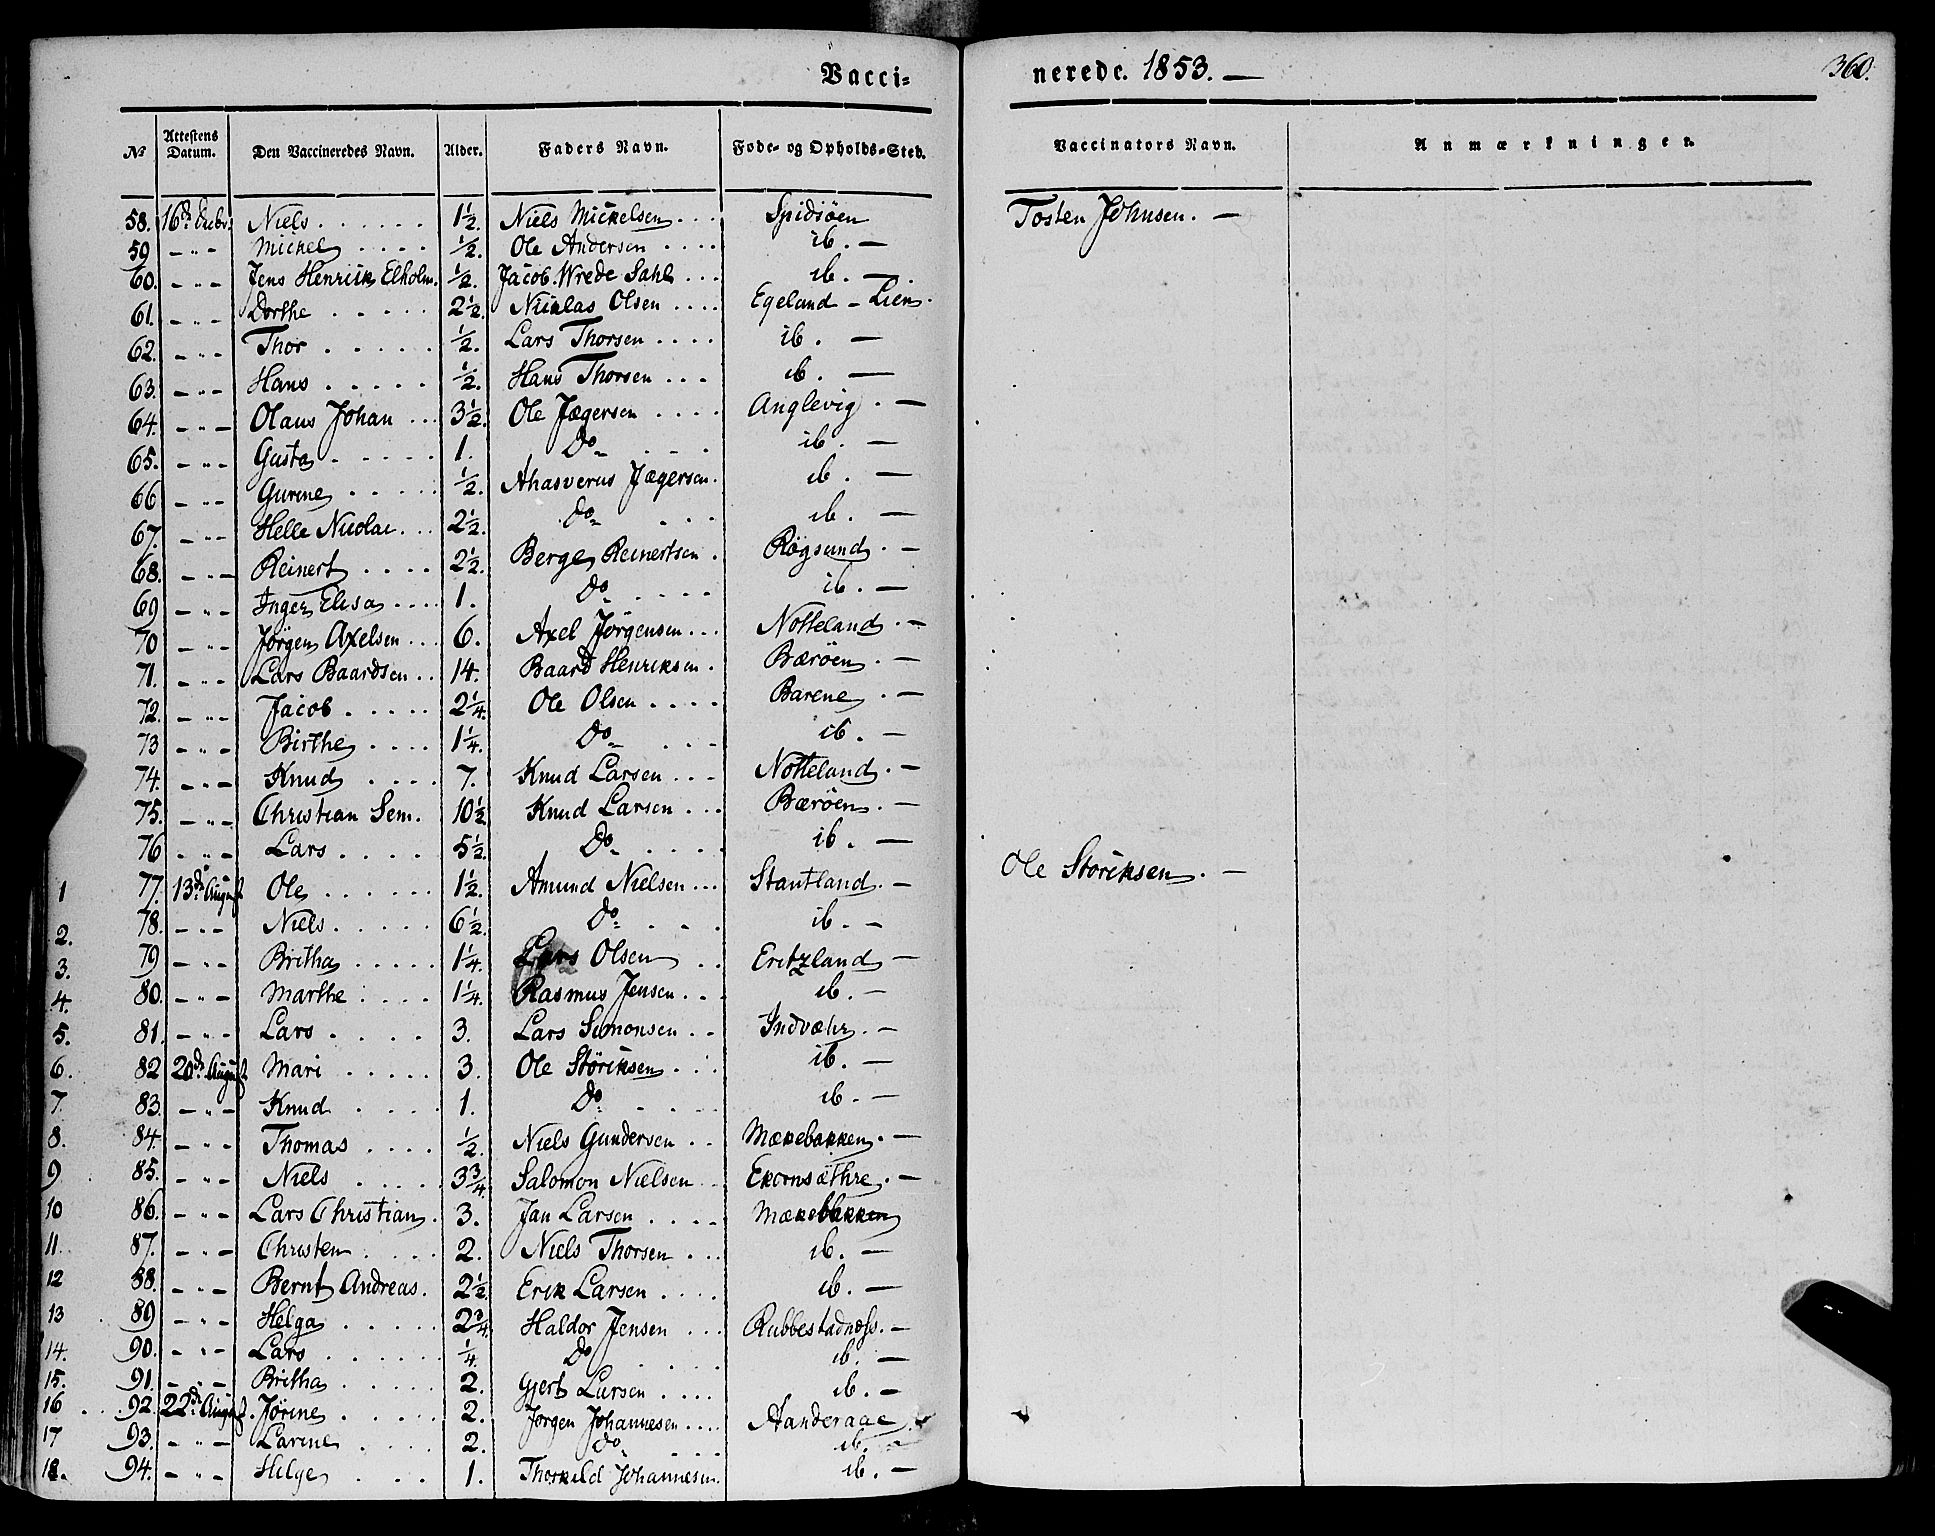 Vacci-
nerede. 1853. —
360.
No
Attestens Datum.
Den Vaccineredes Navn.
Alder.
Faders Navn.
Føde- og Opholds-Sted.
Vaccinators Navn.
Anmærkninger.
58. 16d Niels 1½. Niels Mickelsen Spidsöen Tosten Johnsen. —
59 - „ - Michel ½. Ole Andersen ib. —
60. - „ - Jens Henrick Elholm. ½. Jacob Wrede Dahl ib. —
61. - „ - Dorthe 2½. Nicolas Olsen Egeland - Lien.
62. - „ - Thor ½. Lars Thorsen ib. —
63. - „ - Hans ½. Hans Thorsen ib. —
64. - „ - Olaus Johan 3½. Ole Jægersen Anglevig. —
65. - „ - Gusta 1. Do ib. —
66 - „ - Gurine ½. Ahasverus Jægersen. ib. —
67. - „ - Helle Nicolai 2½. Do ib. —
68. - „ - Reinert 2½. Berge Reinertsen. Røgsund. —
69 - „ - Inger Elisa 1. Do ib. —
70 - „ - Jörgen Axelsen 6. Axel Jörgensen Notteland. —
71. - „ - Lars Baardsen 14. Baard Henriksen. Bæröen. —
72. - „ - Jacob 2¼. Ole Olsen Barene. —
73 - „ - Birthe 1¼. Do ib. —
74. - „ - Knud 7. Knud Larsen Notteland. —
75. - „ - Christian Sem. 10½ Knud Larsen Bæröen. —
76 - „ - Lars 5½. Do ib. —
1 77. 13d August Ole 1½. Amund Nielsen Stautland. — Ole Störiksen. —
2. 78. - „ - Niels 6½. Do ib. —
3. 79 - „ - Britha 1¼. Lars Olsen Eritzland —
4. 80. - „ - Marthe 1¼. Rasmus Jensen ib. —
5. 81. - „ - Lars 3. Lars Simonsen Indvæhr. —
6. 82 20d August Mari 3. Ole Störiksen ib. —
7. 83. - „ - Knud 1. Do ib. —
8. 84. - „ - Thomas ½. Niels Gundersen Mækebakken. —
9 85. - „ - Niels 3¾. Salomon Nielsen Ekornsæthre. —
10 86. - „ - Lars Christian. 3. Jan Larsen Mækebakken
11. 87. - „ - Christen 2. Niels Thorsen ib. —
12 88. - „ - Bernt Andreas. 2½. Erik Larsen ib. —
13 89 - „ - Helga 2¾. Haldor Jensen Rubbestadnæss. —
14. 90. - „ - Lars ¼. Do ib. —
15. 91. - „ - Britha 2. Gjert Larsen ib. —
16 92. 22d August. Jörine 2. Jörgen Johannesen Aanderaae.
17 93. - „ - Larine 2. Do ib. —
18. 94. - „ - Helge 1. Thorkild Johannesen. ib. —